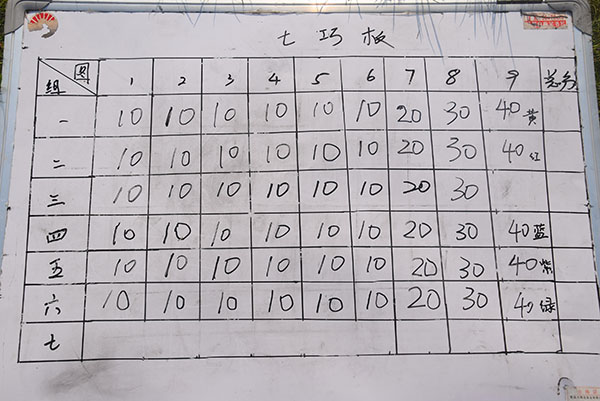 七巧板
组 图 1 2 3 4 5 6 7 8 9 总分
一 10 10 10 10 10 10 20 30 40 黄
二 10 10 10 10 10 10 20 30 40 红
三 10 10 10 10 10 10 20 30
四 10 10 10 10 10 10 20 30 40 蓝
五 10 10 10 10 10 10 20 30 40 紫
六 10 10 10 10 10 10 20 30 40 绿
七